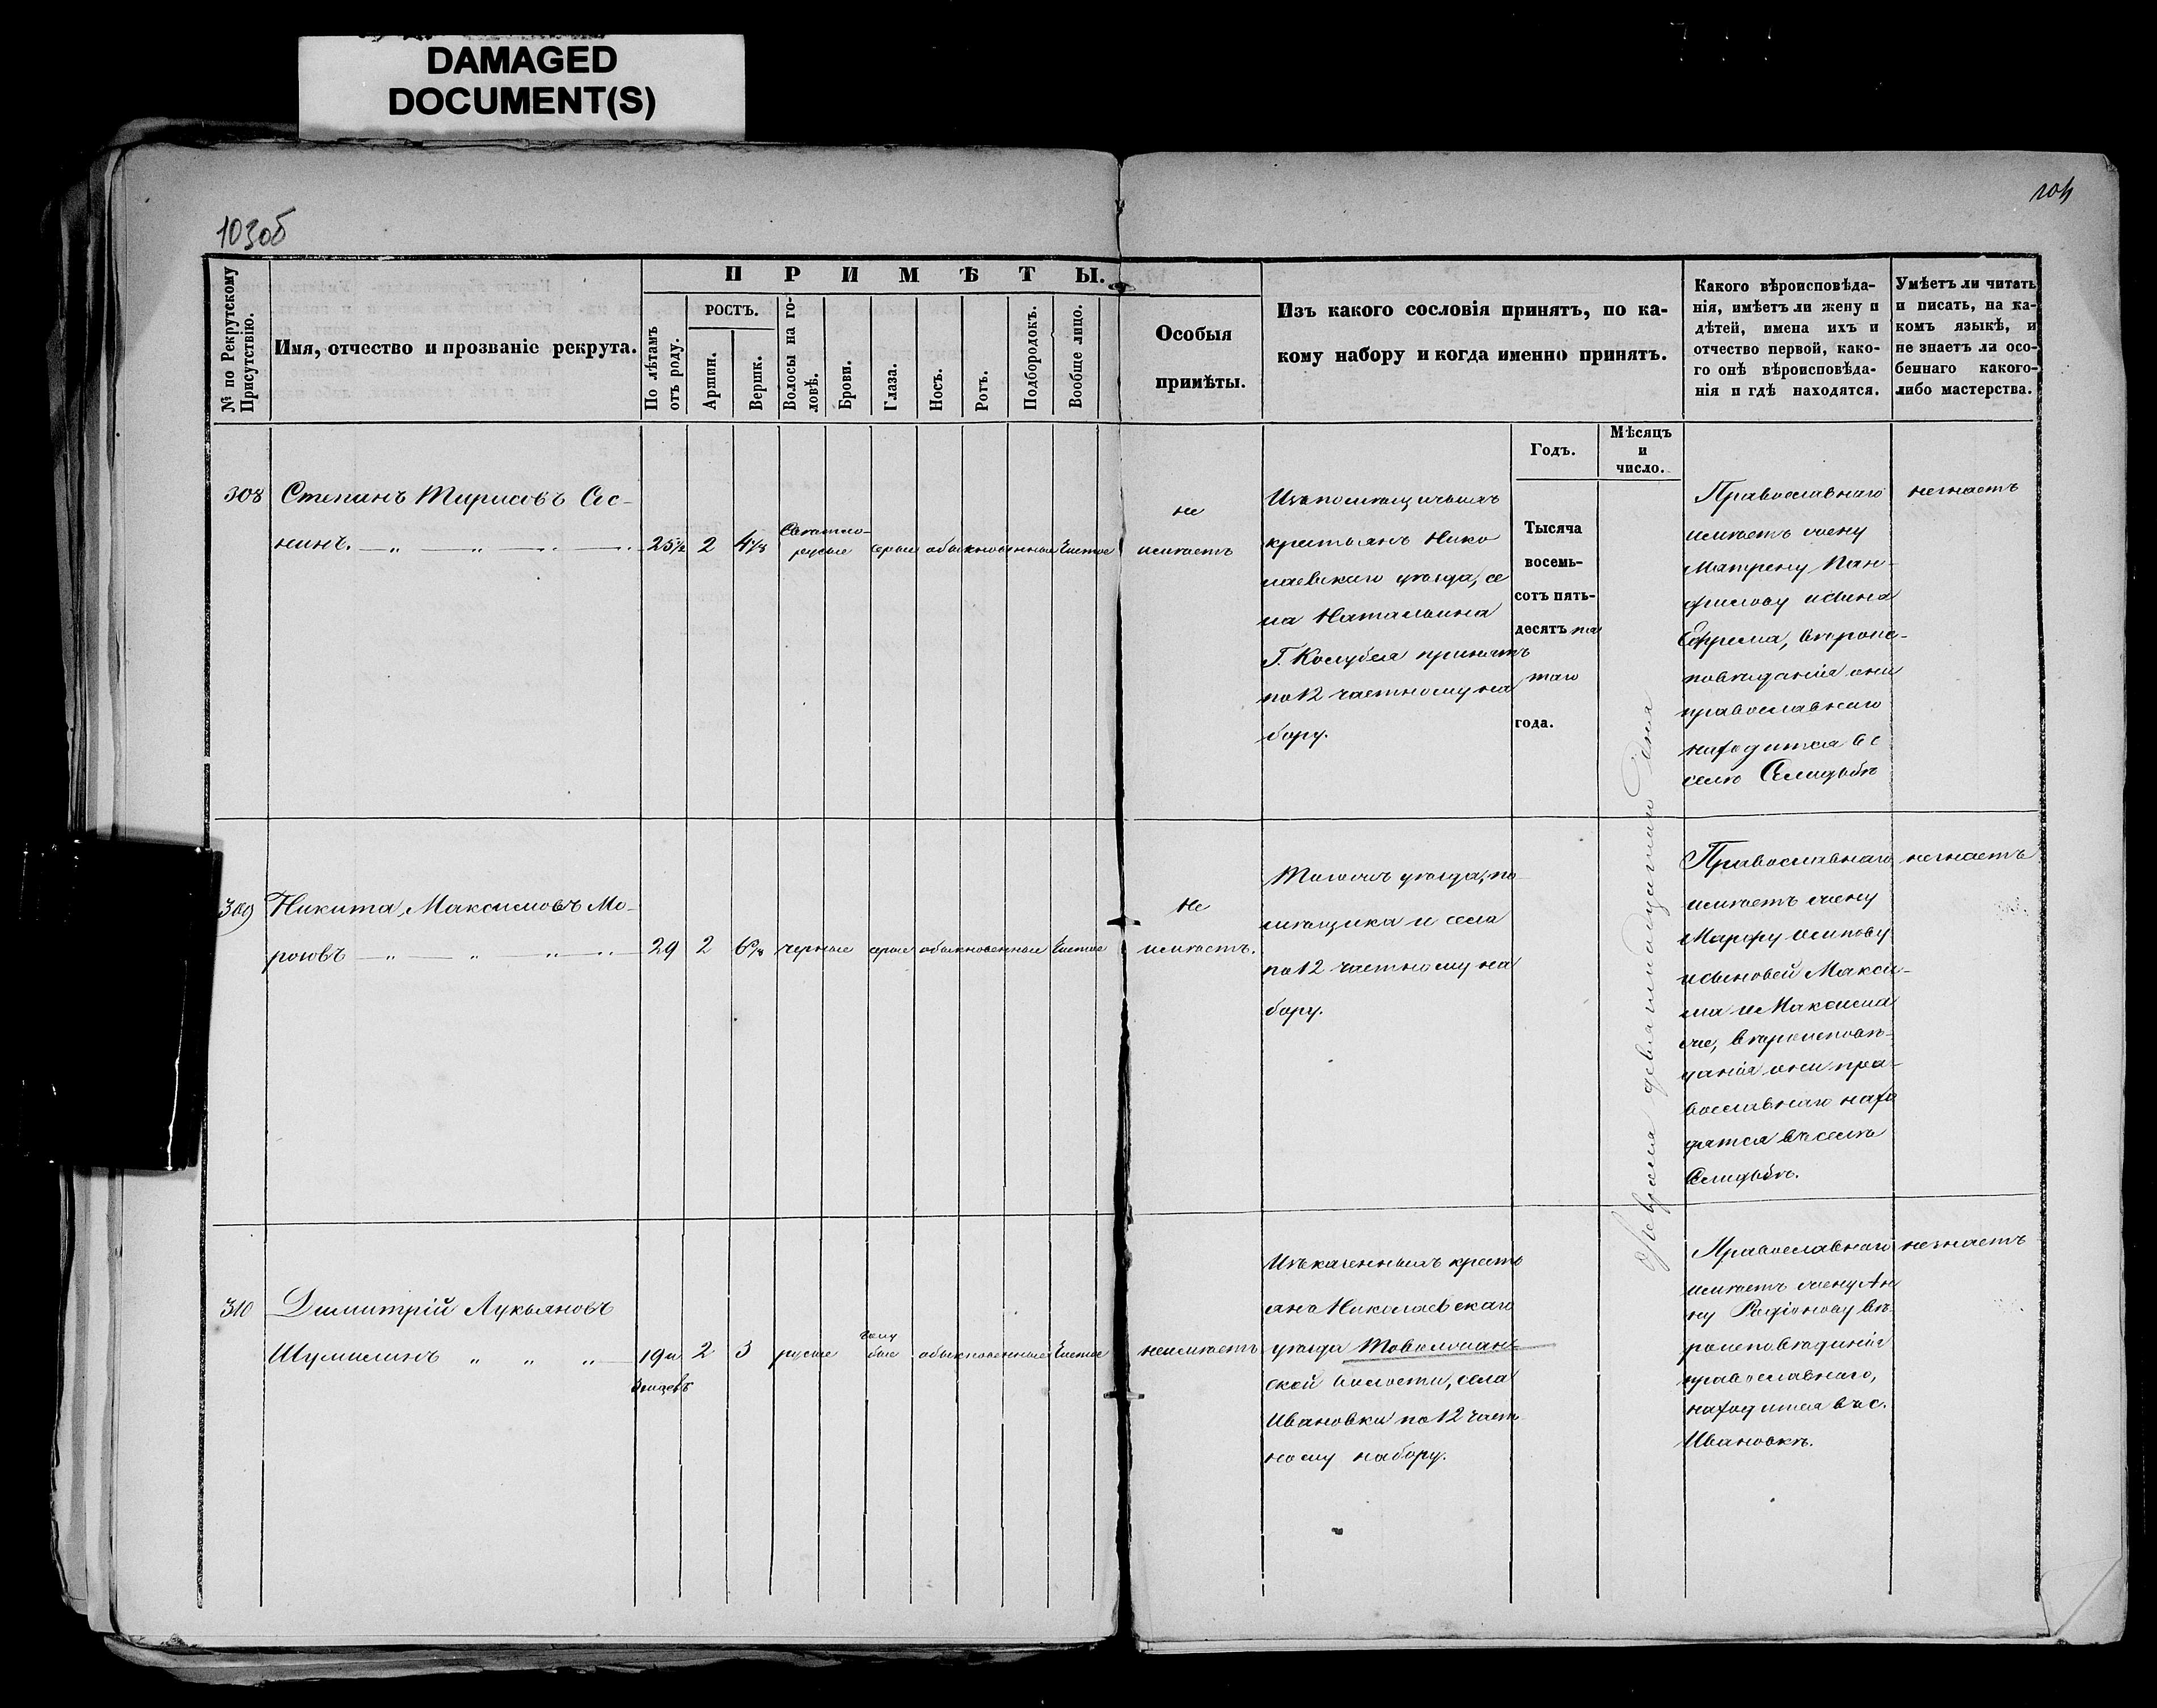 DAMAGED
DOCUMENT(S)
103об
104
№ по Рекрутскому
Присутствію.
Имя, отчество и прозваніе рекрута.
ПРИМѢТЫ.
По лѣтамъ
отъ роду.
РОСТЪ.
Аршин.
Вершк.
Волосы на го-
ловѣ.
Брови.
Глаза.
Носъ.
Ротъ.
Подбородокъ.
Вообще лицо.
Особыя
примѣты.
Изъ какого сословія принятъ, по ка-
кому набору и когда именно принятъ.
Годъ.
Мѣсяцъ
и
число.
Какого вѣроисповѣда-
нія, имѣетъ ли жену и
дѣтей, имена ихъ и
отчество первой, како-
го онѣ вѣроисповѣда-
нія и гдѣ находятся.
Умѣетъ ли читать
и писать, на ка-
комъ языкѣ, и
не знаетъ ли осо-
беннаго какого-
либо мастерства.
308
Степанъ
нинъ.
25½ 2 4⅛
Свѣтло-
русые
серые обыкновенные Чистое
не
имѣетъ
Изъ помѣщичьихъ
крестьянъ Нико
лаевскаго уѣзда, се
ла Натальина
Г. принятъ
по 12 частному на
бору.
Тысяча
восемь-
сотъ пять-
десятъ пя
таго
года.
Февраля девятнадцатаго дня
Православнаго
имѣетъ жену
Матрену Пан-
филову и сына
Ефрема, вѣроис-
повѣданія они
православнаго
находится въ
селѣ
незнаетъ
309
Никита Максимовъ Мо-
роовъ
29 2 6⅞ черные серые обыкновенные Чистое
Не
имѣетъ.
Тогожъ уѣзда, по
мѣщика и села
по 12 частному на
бору.
Православнаго
имѣетъ жену
Марфу Осипову
и сыновей Макси-
ма и Максима
же, вѣроисповѣ-
данія они пра-
вославнаго нахо
дятся въ селѣ
незнаетъ
310
Димитрій Лукьяновъ
Шумилинъ
19 и 2 3 русые
голу
бые
обыкновенные Чистое
неимѣетъ
Изъ казенныхъ кресть
янъ Николаевскаго
уѣзда
ской волости, села
Ивановки по 12 част
ному набору.
Православнаго
имѣетъ жену Ан
ну Родіонову вѣ-
роисповѣданія
православнаго,
находится въ с.
Ивановкѣ.
незнаетъ